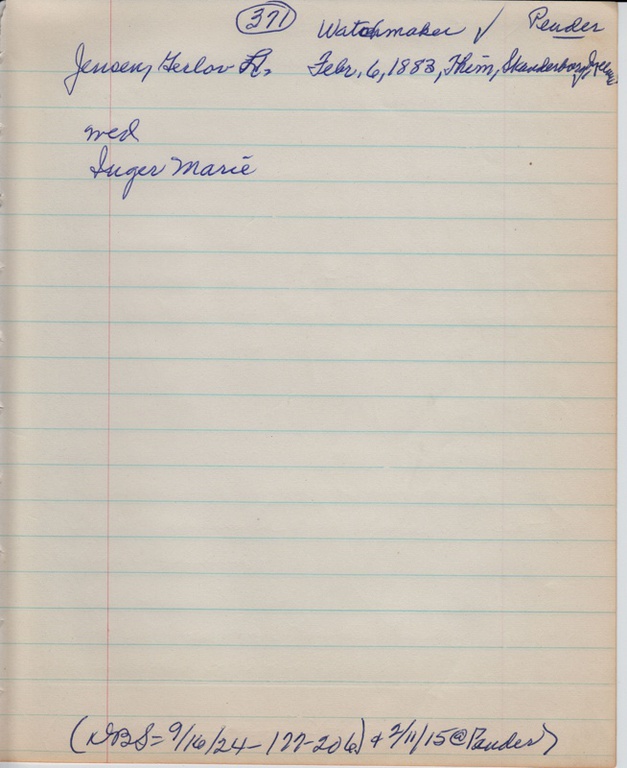 371 Watchmaker ✓ Pender
Jensen, Gerlov Febr. 6, 1883, Them, Skanderborg,
wed
Inger Marie
(DBS= 9/16/24-177-206) + 2/11/15@Pender)